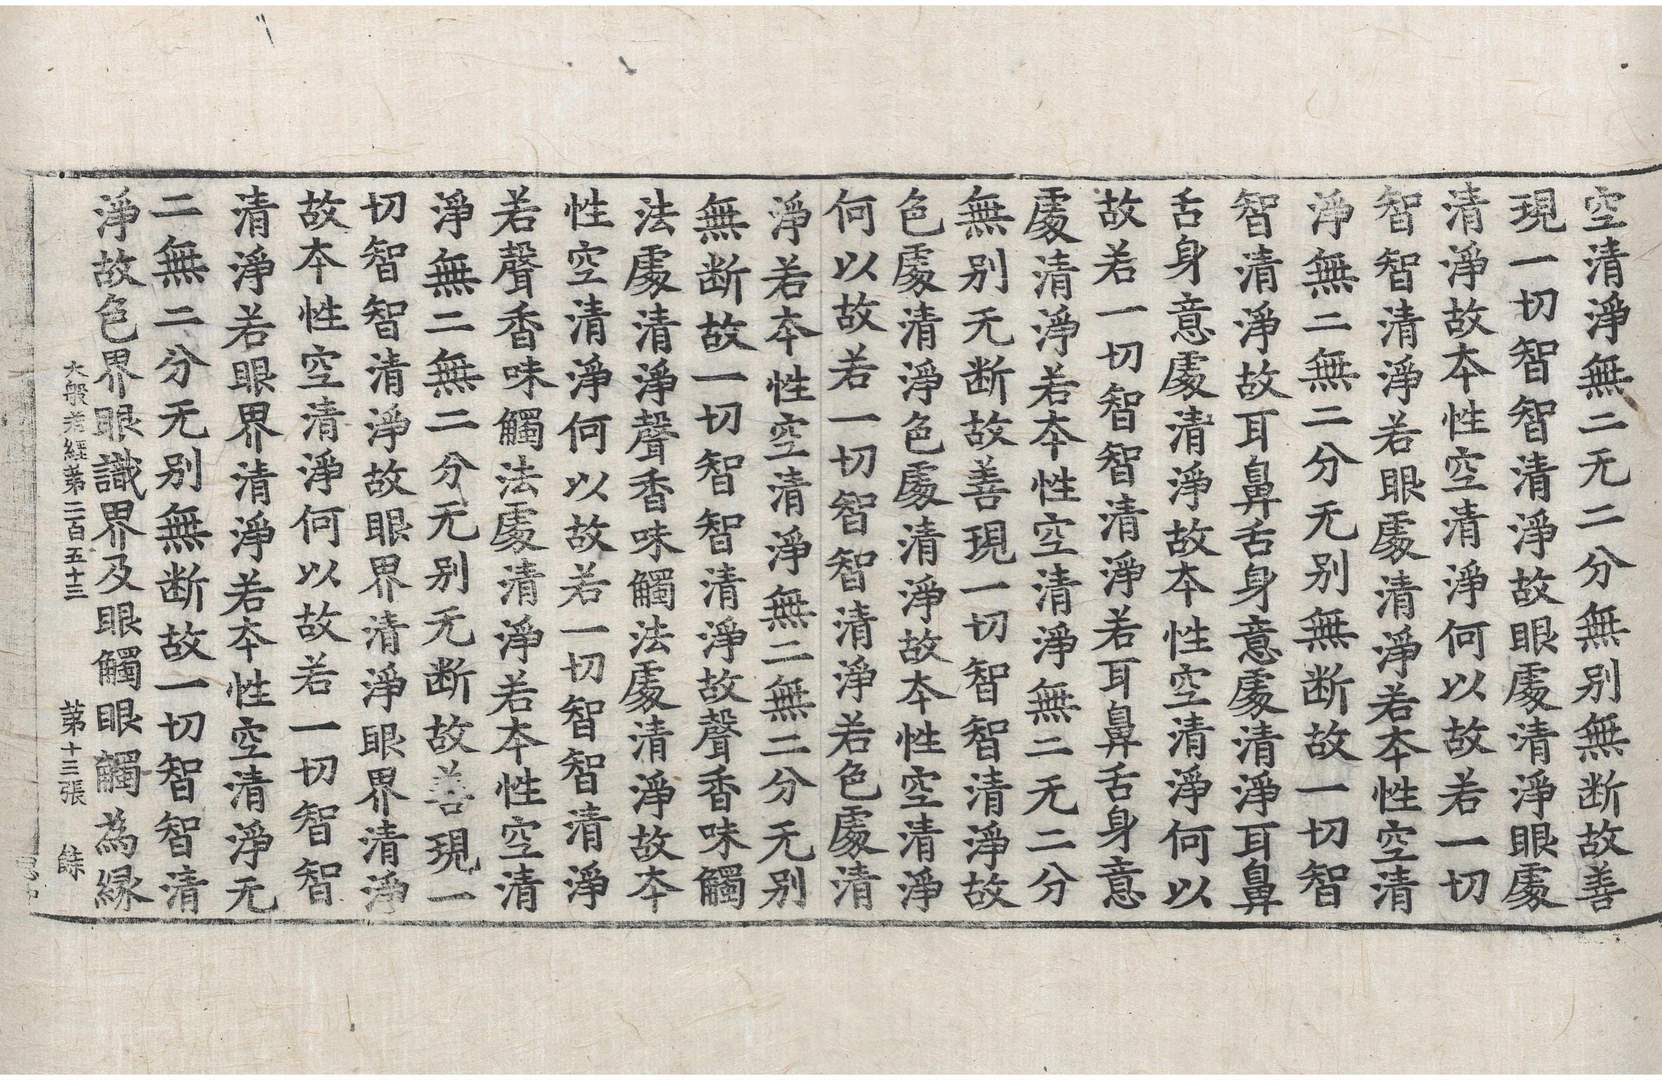 空清淨無二无二分無别無断故善
現一切智智清淨故眼處清淨眼處
清淨故本性空清淨何以故若一切
智智清淨若眼處清淨若本性空清
淨無二無二分无别無断故一切智
智清淨故耳鼻舌身意處清淨耳鼻
舌身意處清淨故本性空清淨何以
故若一切智智清淨若耳鼻舌身意
處清淨若本性空清淨無二无二分
無别无断故善現一切智智清淨故
色處清淨色處清淨故本性空清淨
何以故若一切智智清淨若色處清
淨若本性空清淨無二無二分无别
無断故一切智智清淨故聲香味觸
法處清淨聲香味觸法處清淨故本
性空清淨何以故若一切智智清淨
若聲香味觸法處清淨若本性空清
淨無二無二分无别无断故善現一
切智智清淨故眼界清淨眼界清淨
故本性空清淨何以故若一切智智
清淨若眼界清淨若本性空清淨无
二無二分无别無断故一切智智清
淨故色界眼識界及眼觸眼觸為緣
大般若經第二百五十三 第十三張 餘